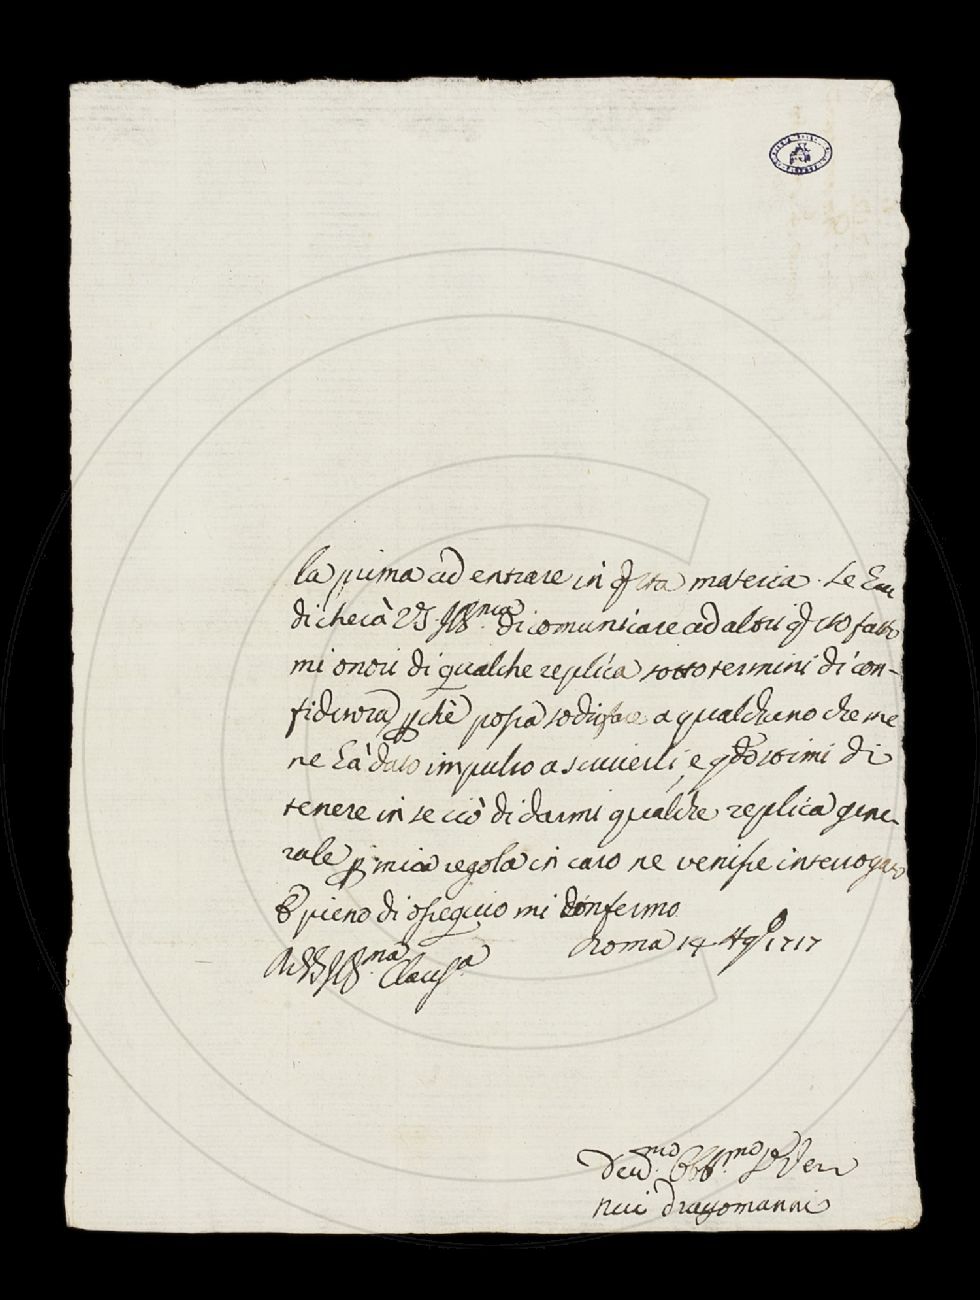 la prima ad entrare in q̃sta materia. Se Em
di che cà V.S. Ill.ma di comunicare ad altri q̃sto fatto
mi onori di qualche replica sotto termini di con-
fidenza, p̱chè possa sodisfare a qualcheuno che me
ne hà dato impulso a scriverli, e q̃do stimi di
tenere in se ciò di darmi qualche replica gene-
rale p̱ mia regola in caso ne venisse interrogato
e pieno di ossequio mi confermo
Roma 14 Ag.o 1717
Di V.S. Ill.ma Clariss.a
Dev.mo Obb.mo Ser
Neri dragomanni